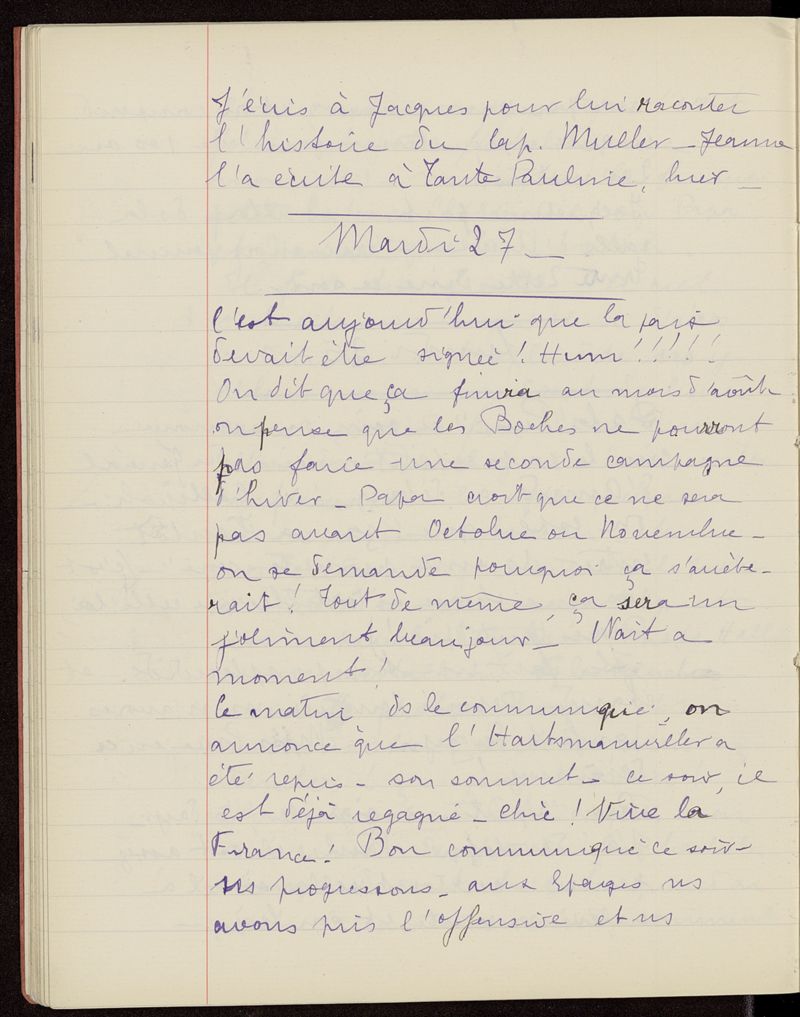 J'écris à Jacques pour lui raconter
l'histoire du Cap. Muller _ Jeanne
l'a écrite à Tante Pauline, hier _
Mardi 27 _
C'est aujourd'hui que la paix
devait être signée ! Hum ! ! ! ! !
On dit que ça finira au mois d'août
on pense que les Boches ne pourront
pas faire une seconde campagne
d'hiver _ Papa croit que ce ne sera
pas avant Octobre ou Novembre _
on se demande pourquoi ça s'arrête-
rait ! Tout de même, ça sera un
joliment beau jour _ Wait a
moment !
Ce matin ds le communiqué, on
annonce que l'Hartsmanviller a
été repris _ son sommet _ ce soir, il
est déjà regagné _ chic ! Vive la
France ! Bon communiqué ce soir _
ns progressons _ aux Eparges ns
avons pris l'offensive et ns